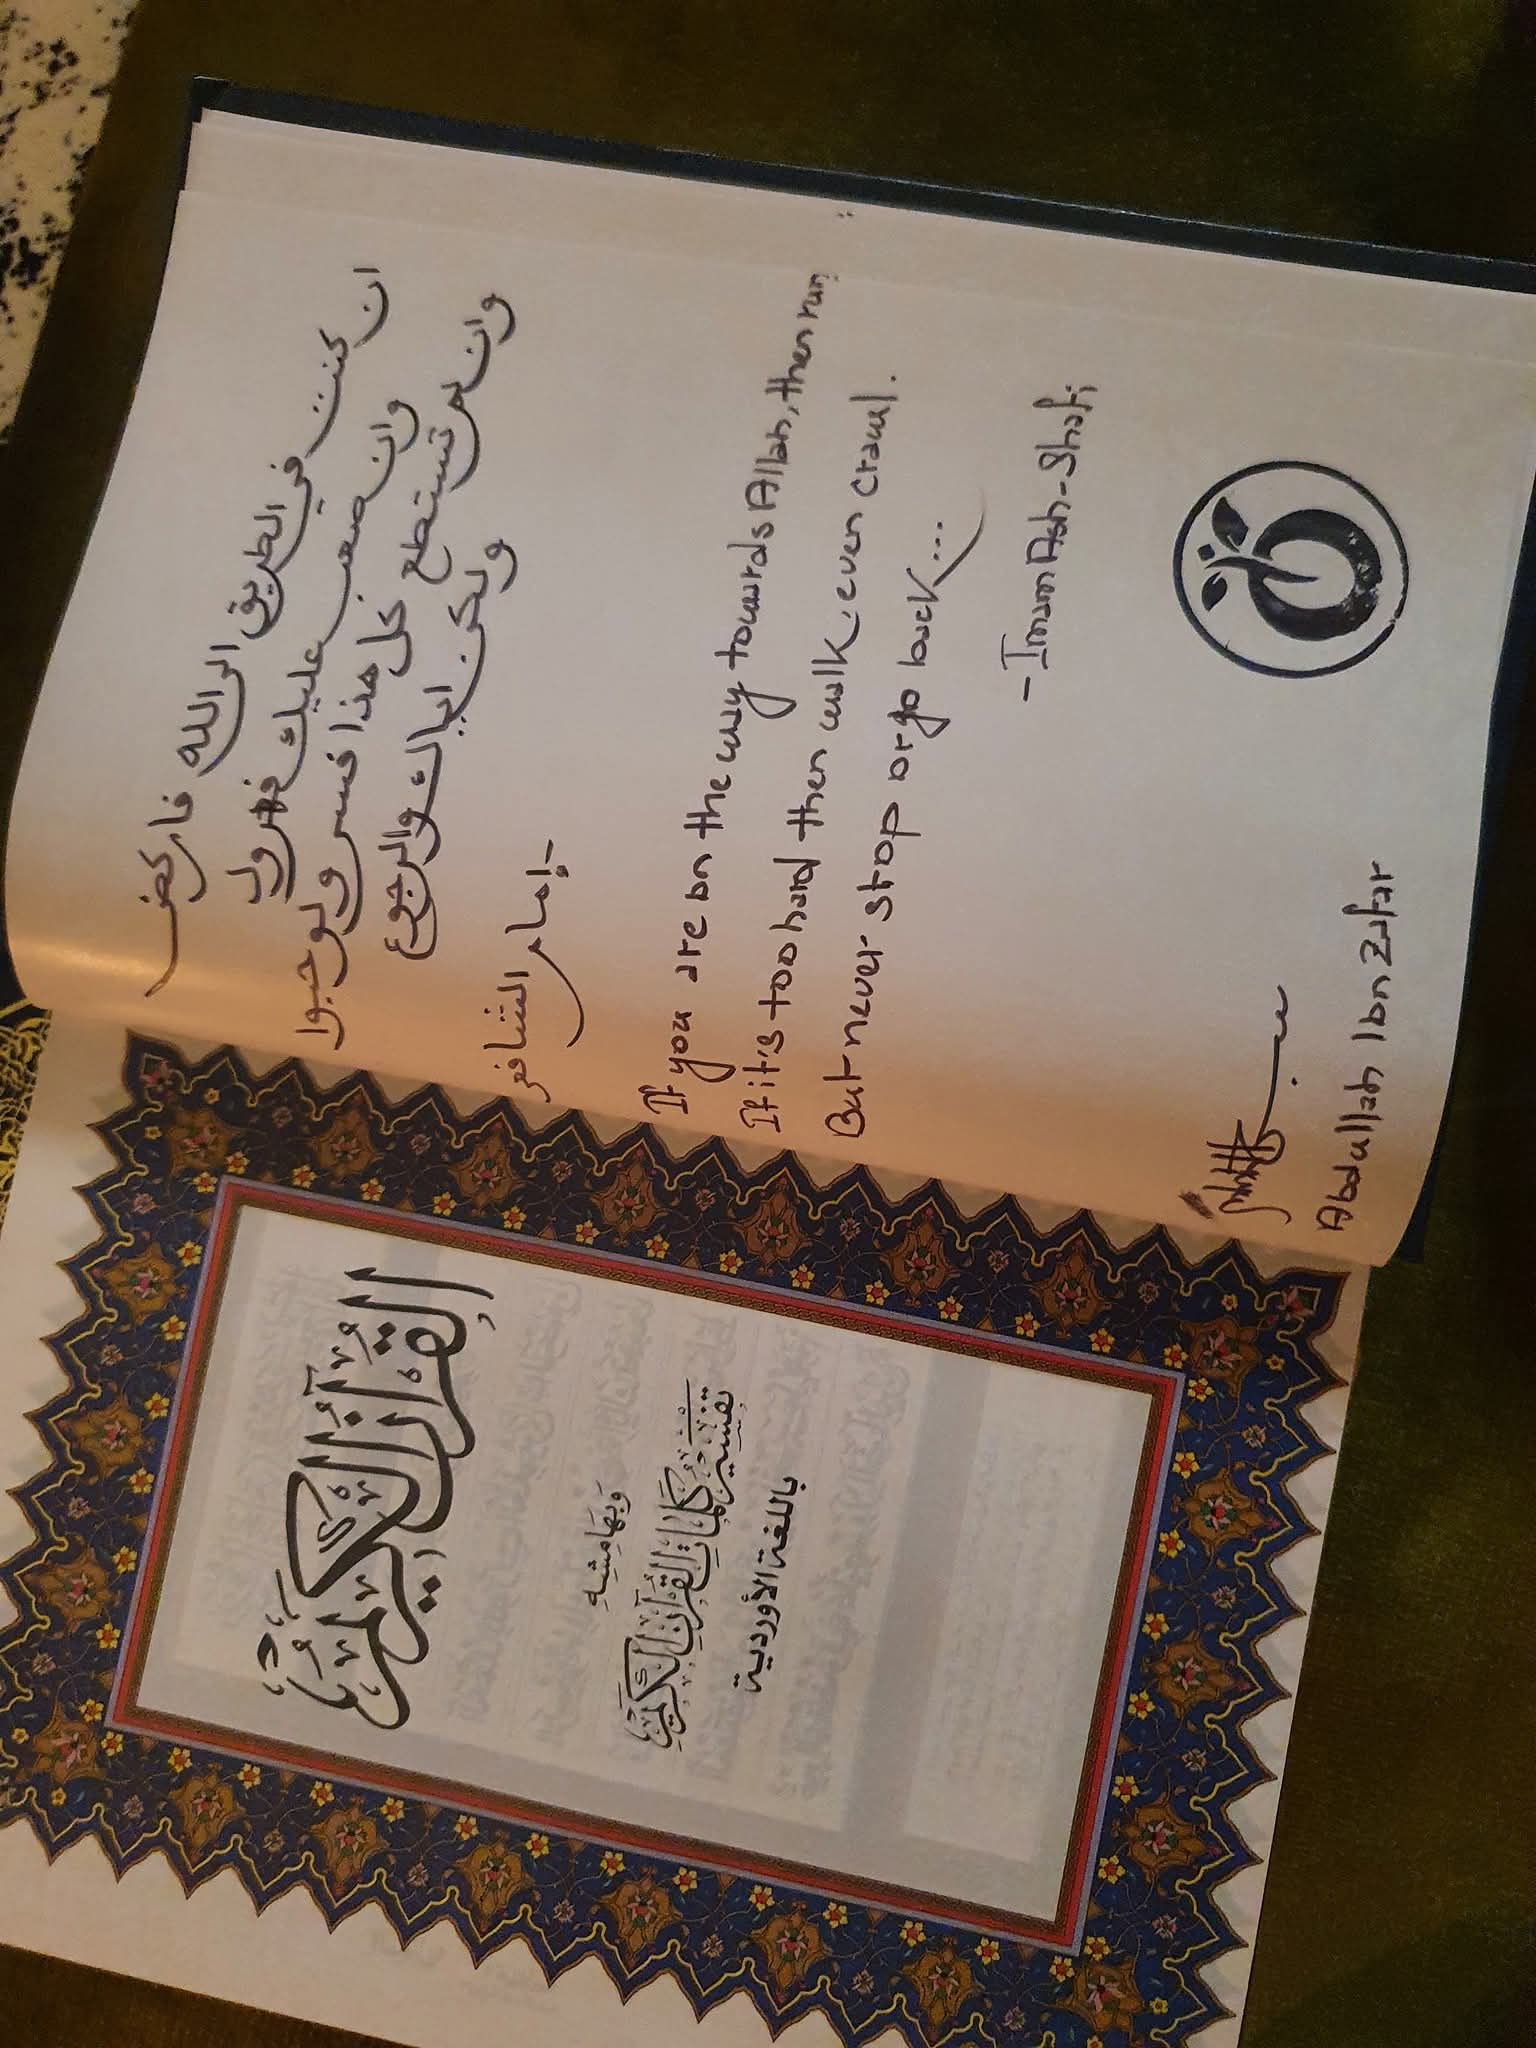 ان كنت في الطريق الى الله فاركض
وان صعب عليك فهرول
وان لم تستطع كل هذا فسر ولو حبوا
ولكن اياك والرجوع
- إمام الشافعي
If you are on the way towards Allah, then run,
If it's too hard then walk, even crawl.
But never stop or go back...
- Imam Ash-Shafi
Abdullah Ibn Zafar
القُرْآنُ الكَرِيمُ
وَبِهَامِشِهِ
تَفْسِيرُ كَلِمَاتِ القُرْآنِ الكَرِيمِ
باللغة الأوردية